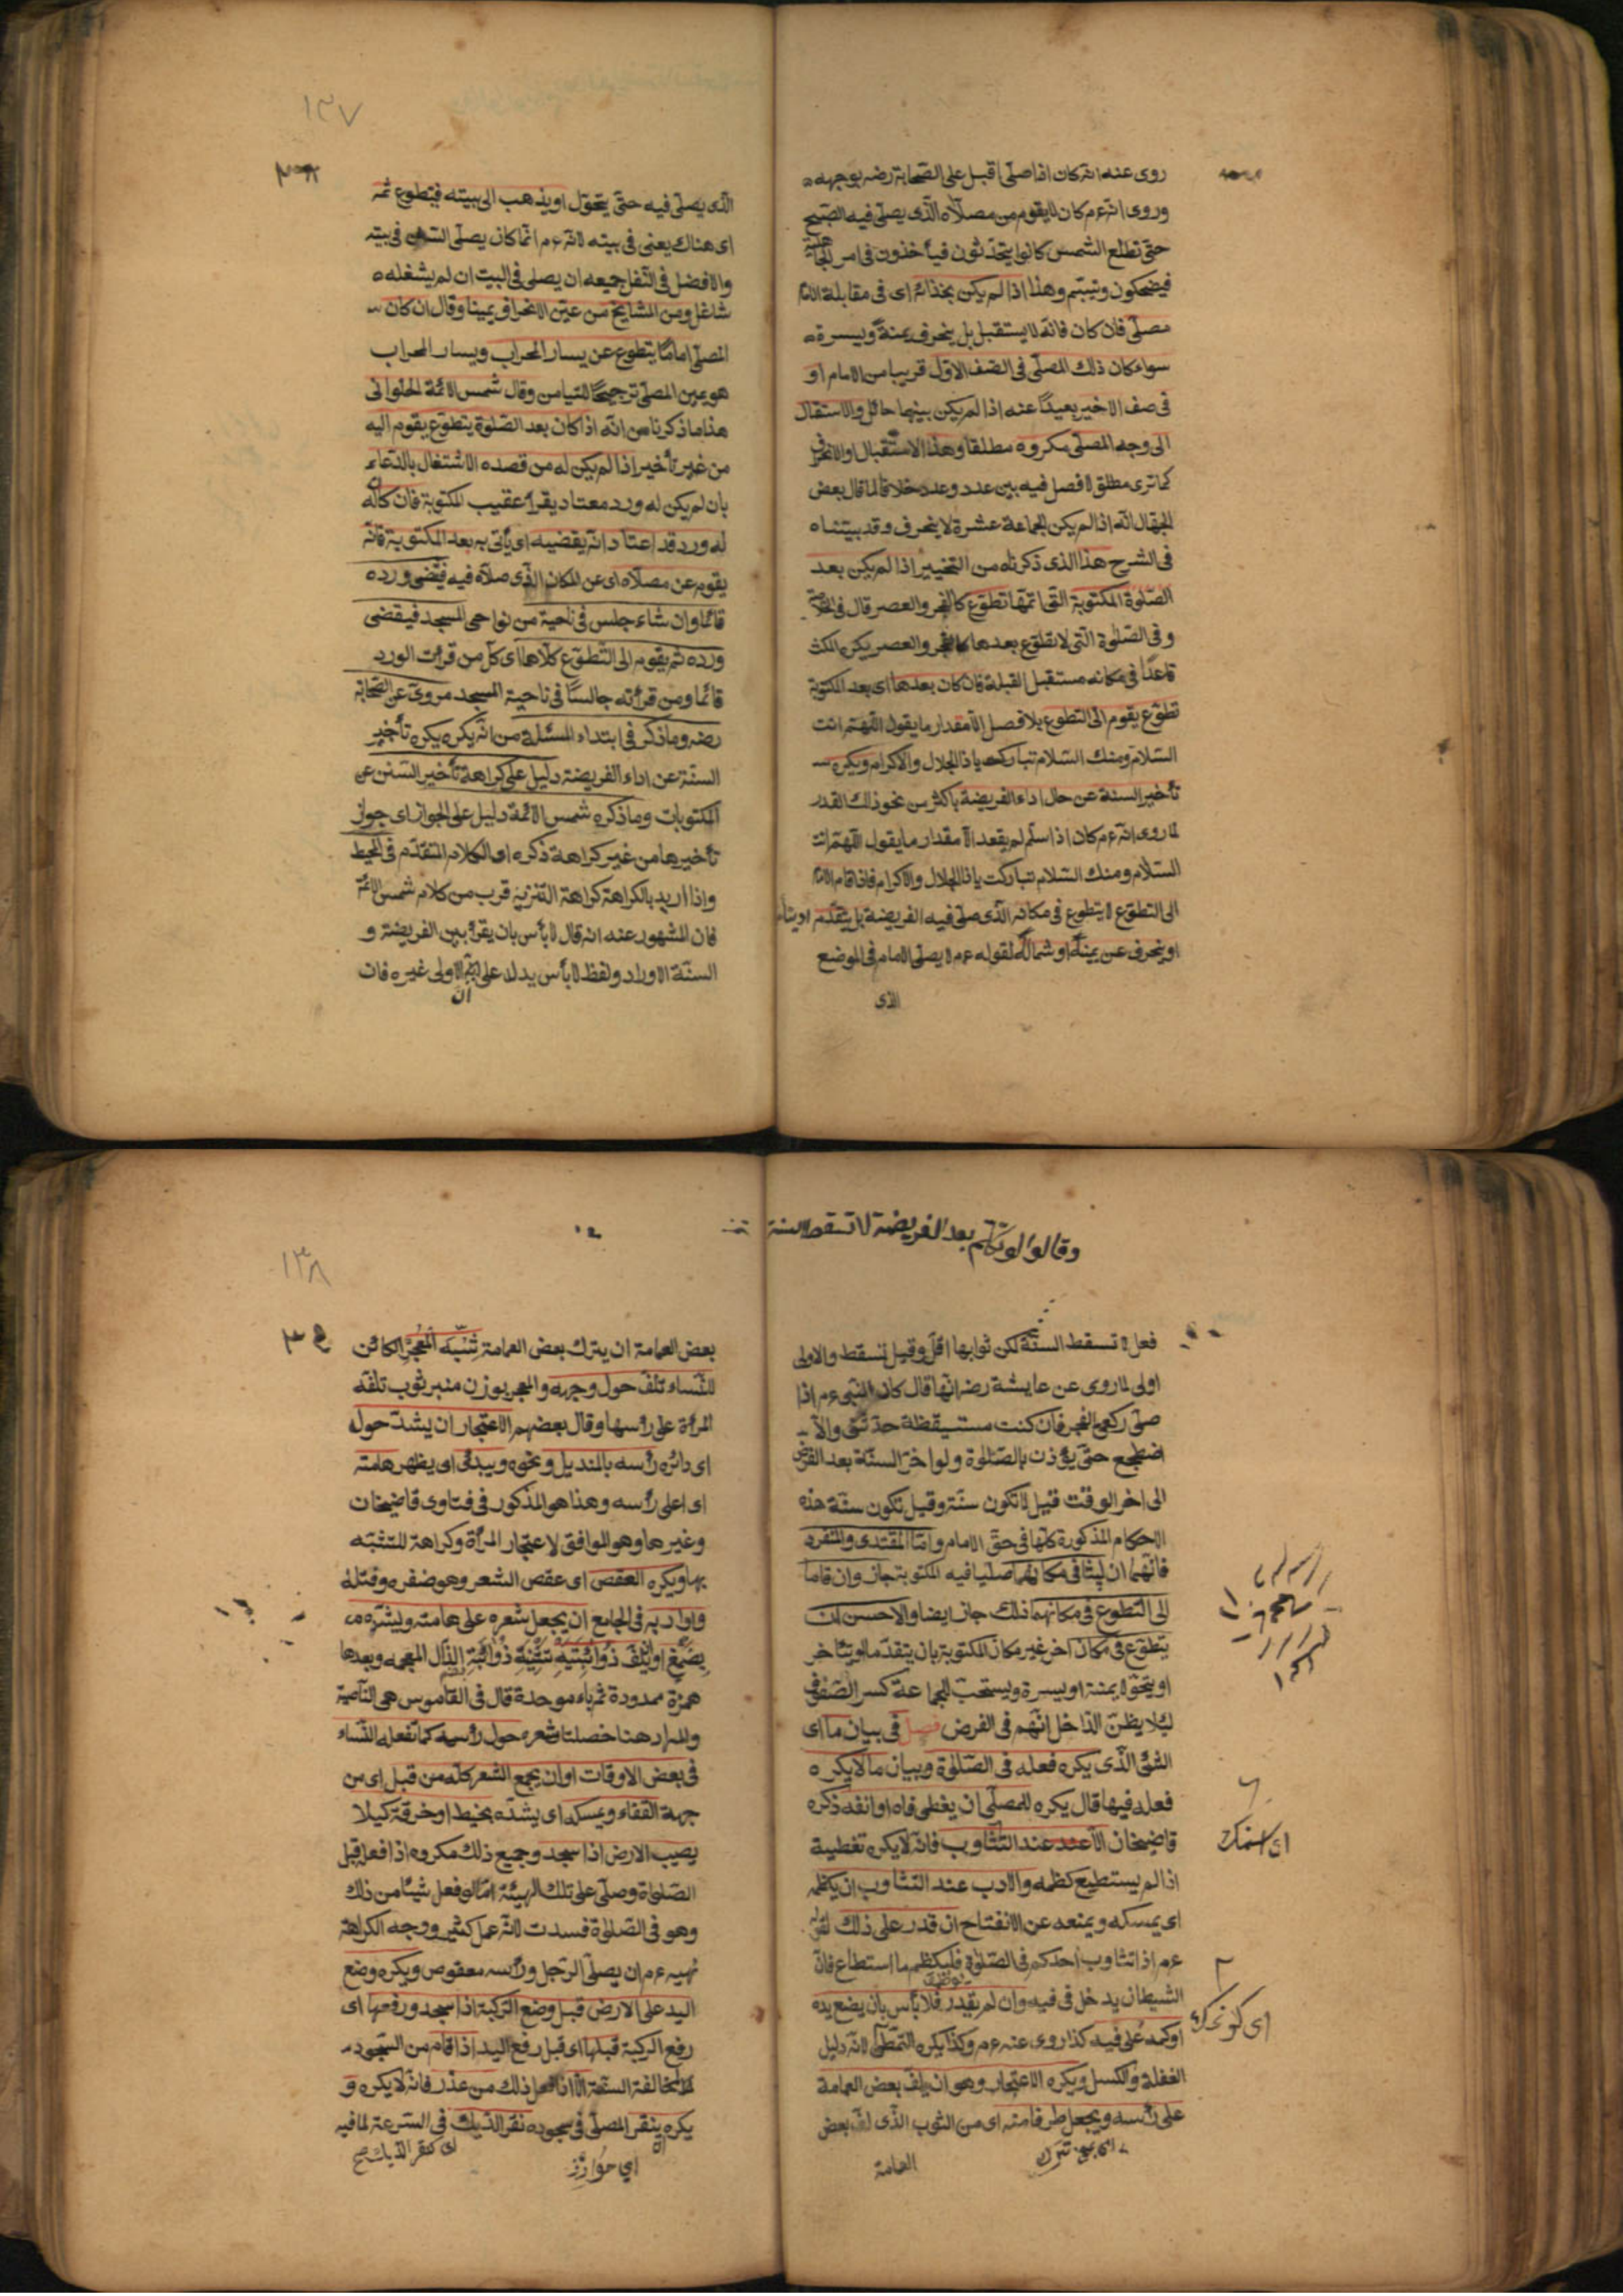 روى عنه انه كان اذا صلى اقبل على الصحابة رضه بوجهه
وروى انه عم كان لا يقوم من مصلاه الذى يصلى فيه الصبح
حتى تطلع الشمس كانوا يتحدثون فيأخذون فى امر الجاهلية
فيضحكون ويتبسم وهذا اذا لم يكن بحذائه اى فى مقابلة الامام
مصلى فان كان فانه لا يستقبل بل ينحرف يمنة ويسرة
سواء كان ذلك المصلى فى الصف الاول قريبا من الامام او
فى صف الاخير بعيدا عنه اذا لم يكن بينهما حائل والاستقبال
الى وجه المصلى مكروه مطلقا وهذا الاستقبال او الانحراف
كما ترى مطلق لا فصل فيه بين عدد وعدد خلافا لما قال بعض
الجهال انه اذا لم يكن الجماعة عشرة لا ينحرف وقد بيناه
فى الشرح هذا الذى ذكرناه من التخيير اذا لم يكن بعد
الصلوة المكتوبة التى اتمها تطوع كالفجر والعصر قال فى الخلاصة
وفى الصلوة التى لا تطوع بعدها كالفجر والعصر يكره المكث
قاعدا فى مكانه مستقبل القبلة فان كان بعدها اى بعد المكتوبة
تطوع يقوم الى التطوع بلا فصل الا مقدار ما يقول اللهم انت
السلام ومنك السلام تباركت يا ذا الجلال والاكرام ويكره
تأخير السنة عن حال اداء الفريضة باكثر من نحو ذلك القدر
لما روى انه عم كان اذا سلم لم يقعد الا مقدار ما يقول اللهم انت
السلام ومنك السلام تباركت يا ذا الجلال والاكرام فاذا قام الامام
الى التطوع لا يتطوع فى مكانه الذى صلى فيه الفريضة بل يتقدم او يتأخر
او ينحرف عن يمينه او شماله لقوله عم لا يصلى الامام فى الموضع
الذى
١٣٧
الذى يصلى فيه حتى يتحول او يذهب الى بيته فيتطوع ثمه
اى هناك يعنى فى بيته لانه عم انما كان يصلى السنن فى بيته
والافضل فى النفل جميعه ان يصلى فى البيت ان لم يشغله
شاغل ومن المشايخ من عين الانحراف يمينا وقال ان كان
المصلى اماما يتطوع عن يسار المحراب ويسار المحراب
هو يمين المصلى ترجيحا للتيامن وقال شمس الائمة الحلوانى
هذا ما ذكرنا من انه اذا كان بعد الصلوة يتطوع يقوم اليه
من غير تأخير اذا لم يكن له من قصده الاشتغال بالدعاء
بان لم يكن له ورد معتاد يقرأ عقيب المكتوبة فان كان له
له ورد قد اعتاد انه يقضيه اى يأتى به بعد المكتوبة فانه
يقوم عن مصلاه اى عن المكان الذى صلاه فيه فيقضى ورده
قائما وان شاء جلس فى ناحية من نواحى المسجد فيقضى
ورده ثم يقوم الى التطوع كلاهما اى كل من قرأت الورد
قائما ومن قرأته جالسا فى ناحية المسجد مروى عن الصحابة
رضه وما ذكر فى ابتداء المسئلة من انه يكره يكره تأخير
السنة عن اداء الفريضة دليل على كراهة تأخير السنن عن
المكتوبات وما ذكره شمس الائمة دليل على الجواز اى جواز
تأخيرها من غير كراهة ذكره اى الكلام المتقدم فى المحيط
واذا اريد بالكراهة كراهة التنزيه قرب من كلام شمس الائمة
فان المشهور عنه انه قال لا بأس بان يقرأ بين الفريضة و
السنة الاوراد ولفظ لا بأس يدل على ان الاولى غيره فان
ان
وقالوا لو تكلم بعد الفريضة لا تسقط السنة
فعل لا تسقط السنة لكن ثوابها اقل وقيل تسقط والاولى
اولى لما روى عن عايشة رضه انها قال كان النبى عم اذا
صلى ركعتى الفجر فان كنت مستيقظة حدثنى والا
اضطجع حتى يؤذن بالصلوة ولو اخر السنة بعد الفرض
الى اخر الوقت قيل لا تكون سنة وقيل تكون سنة هذه
الاحكام المذكورة كلها فى حق الامام واما المقتدى والمنفرد
فانهما ان لبثا فى مكانهما صليا فيه المكتوبة جاز وان قاما
الى التطوع فى مكانهما ذلك جاز ايضا والاحسن ان
يتطوع فى مكان اخر غير مكان المكتوبة بان يتقدما او يتأخر
او يتحولا يمنة او يسرة ويستحب للجماعة كسر الصفوف
ليلا يظن الداخل انهم فى الفرض فصل فى بيان ما اى
الشئ الذى يكره فعله فى الصلوة وبيان ما لا يكره
فعله فيها قال يكره للمصلى ان يغطى فاه او انفه ذكره
قاضيخان الا عند عند التثاوب فانه لا يكره تغطيية
اذا لم يستطيع كظمه والادب عند التثاوب ان يكظمه
اى يمسكه ويمنعه عن الانفتاح ان قدر على ذلك لقوله
عم اذا تثاوب احدكم فى الصلوة فليكظم ما استطاع فان
الشيطان يدخل فى فيه وان لم يقدر فلا بأس بان يضع يده
او كمه على فيه كذا روى عنه عم وكذا يكره التمطى لانه دليل
الغفلة والكسل ويكره الاعتجار وهو ان يلف بعض العمامة
على رأسه ويجعل طرفا منه اى من الثوب الذى لف بعض
العمامة
١٣٨
بعض العمامة ان يترك بعض العمامة شبه المعجر الكائن
للنساء تلف حول وجهه والمعجر بوزن منبر ثوب تلفه
المرأة على رأسها وقال بعضهم الاعتجار ان يشد حول
اى دائره رأسه بالمنديل ونحوه ويبدى اى يظهر هامته
اى اعلى رأسه وهذا هو المذكور فى فتاوى قاضيخان
وغيرها وهو الموافق لاعتجار المرأة وكراهة للتشبه
بها ويكره العقص اى عقص الشعر وهو ضفره وفتله
واراد به فى الجامع ان يجعل شعره على هامته ويشده
بصمغ او يلف ذؤابتيه تثنية ذؤابة الذال المعجمه وبعدها
همزة ممدودة ثم باء موحدة قال فى القاموس هى الناصية
والمراد هنا خصلتا شعره حول رأسه كما تفعله النساء
فى بعض الاوقات او ان يجمع الشعر كله من قبل اى من
جهة القفاء ويمسكه اى يشده بخيط او خرقة كيلا
يصيب الارض اذا سجد وجميع ذلك مكروه اذا فعل قبل
الصلوة وصلى على تلك الهيئة اما لو فعل شيئا من ذلك
وهو فى الصلوة فسدت لانه عمل كثير ووجه الكراهة
نهيه عم ان يصلى الرجل ورأسه معقوص ويكره وضع
اليد على الارض قبل وضع الركبة اذا سجد ورفعها اى
رفع الركبة قبلها اى قبل رفع اليد اذا قام من السجود
لمخالفة السنة الا ان فعل ذلك من عذر فانه لا يكره و
يكره ينقر المصلى فى سجوده نقر الديك فى السرعة لما فيه
اى كنقر الديك صح